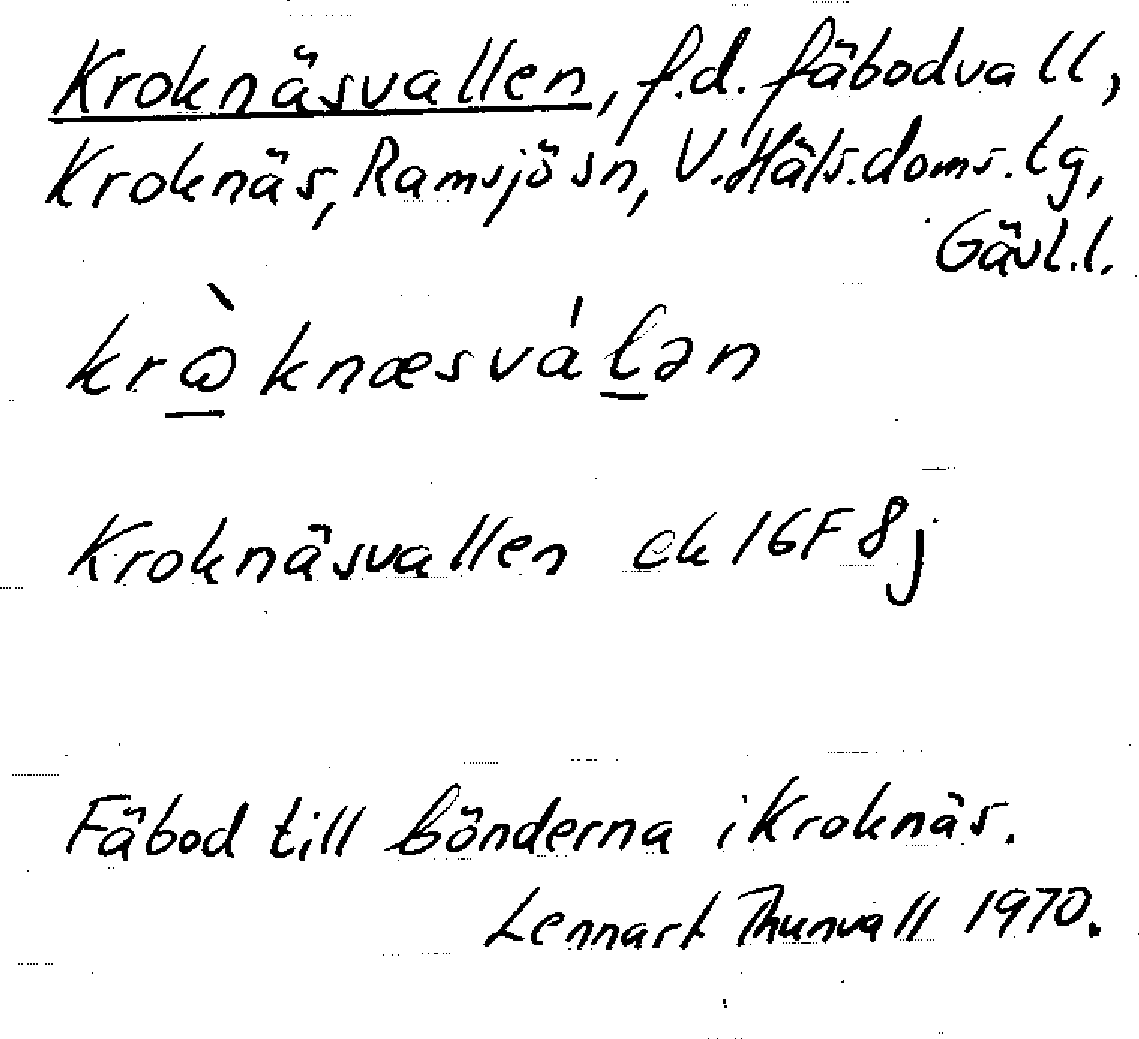 Kroknäsvallen, f.d. fäbodvall,
Kroknäs, Ramsjö sn, V. Häls. doms. lg,
Gävl.l.
krꙍ̀knæsváḻən
Kroknäsvallen ek 16F 8j
Fäbod till bönderna i Kroknäs.
Lennart Thunvall 1970.